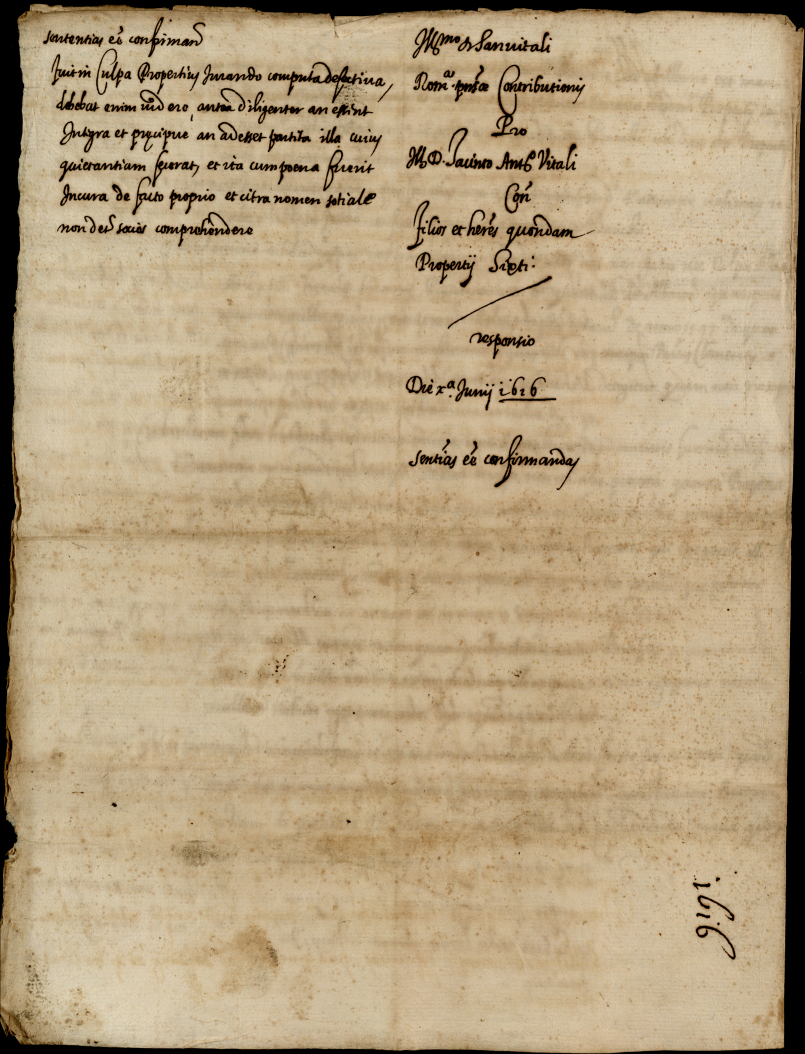 sententias eē confirmand
fuit in Culpa Propertius Jurando computa defectiua,
debebat enim uidere, antea diligenter an essent
Integra et pręcipuè an adesset partita illa cuius
quietantiam fecerat, et ita cum poena fuerit
Incura de facto proprio et citra nomen sotiale
non det socios comprehendere
Illmo Sanuitali
Romª. pñsæ Contributionis
Pro
Ill. D. Jacinto Antº Vitali
Coñ
filios et heres quondam
Propertij Sixti:
responsio
Die xª. Junij 1616
sentias eē confirmandas
1616